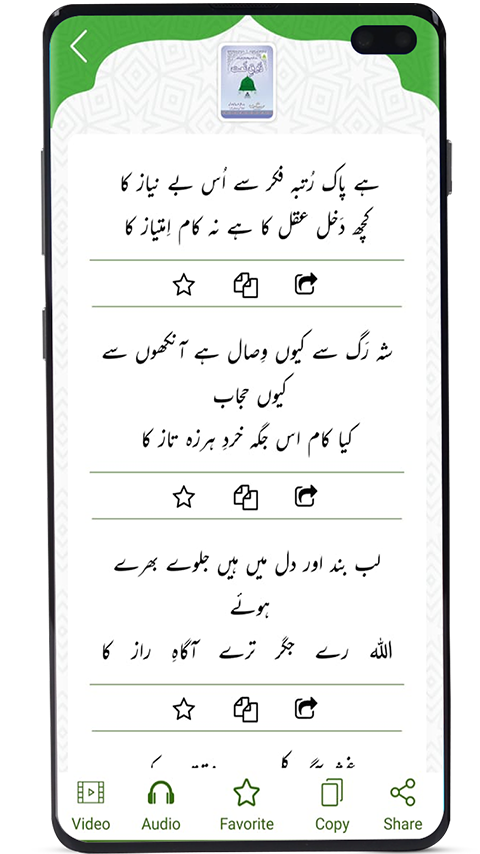 ہے پاک رُتبہ فکر سے اُس بے نیاز کا
کچھ دَخل عقل کا ہے نہ کام اِمتیاز کا
شہ رَگ سے کیوں وِصال ہے آنکھوں سے
کیوں حجاب
کیا کام اس جگہ خردِ ہرزہ تاز کا
لب بند اور دل میں ہیں جلوے بھرے
ہوئے
اللہ رے جگر ترے آگاہِ راز کا
Video
Audio
Favorite
Copy
Share